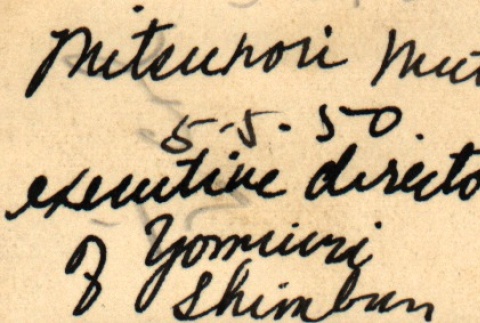 Mitsunori Mut
5-5-50
executive directo
of Yomiuri
Shimbun